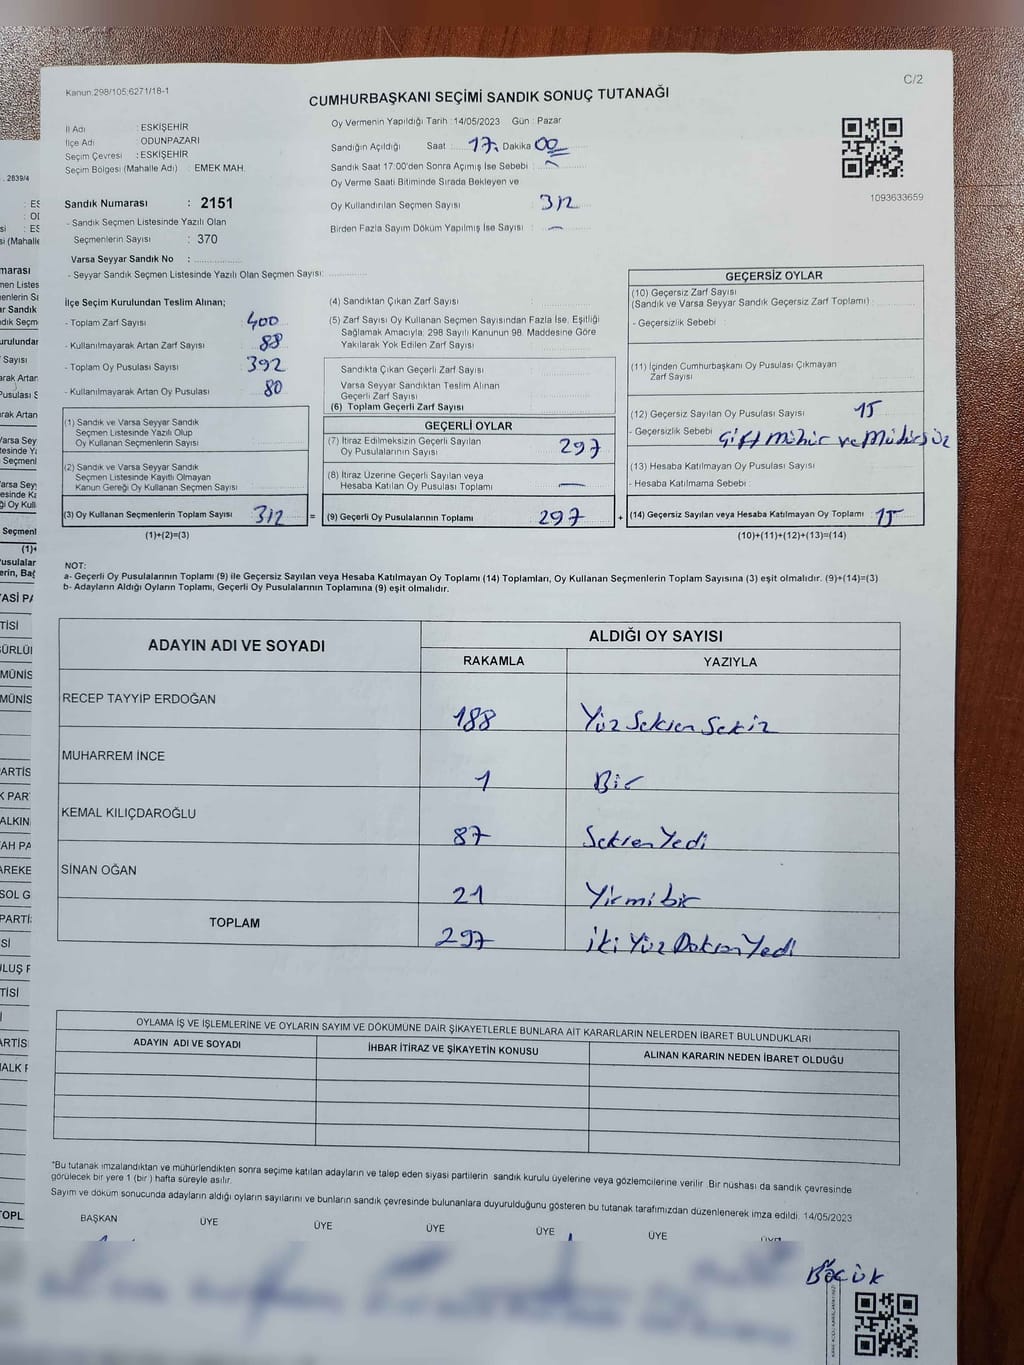 Kanun 298/105 6271/18-1
C/2
CUMHURBAŞKANI SEÇİMİ SANDIK SONUÇ TUTANAĞI
İl Adı : ESKİŞEHİR
İlçe Adı : ODUNPAZARI
Seçim Çevresi : ESKİŞEHİR
Seçim Bölgesi (Mahalle Adı) : EMEK MAH.
Sandık Numarası : 2151
- Sandık Seçmen Listesinde Yazılı Olan
Seçmenlerin Sayısı : 370
Varsa Seyyar Sandık No :
- Seyyar Sandık Seçmen Listesinde Yazılı Olan Seçmen Sayısı:
Oy Vermenin Yapıldığı Tarih : 14/05/2023 Gün : Pazar
Sandığın Açıldığı Saat 17 Dakika 00
Sandık Saat 17:00'den Sonra Açımış İse Sebebi : -
Oy Verme Saati Bitiminde Sırada Bekleyen ve
Oy Kullandırılan Seçmen Sayısı 312
Birden Fazla Sayım Döküm Yapılmış İse Sayısı : -
1093633659
İlçe Seçim Kurulundan Teslim Alınan;
- Toplam Zarf Sayısı 400
- Kullanılmayarak Artan Zarf Sayısı 88
- Toplam Oy Pusulası Sayısı 392
- Kullanılmayarak Artan Oy Pusulası 80
(1) Sandık ve Varsa Seyyar Sandık
Seçmen Listesinde Yazılı Olup
Oy Kullanan Seçmenlerin Sayısı
(2) Sandık ve Varsa Seyyar Sandık
Seçmen Listesinde Kayıtlı Olmayan
Kanun Gereği Oy Kullanan Seçmen Sayısı
(3) Oy Kullanan Seçmenlerin Toplam Sayısı 312 =
(1)+(2)=(3)
(4) Sandıktan Çıkan Zarf Sayısı
(5) Zarf Sayısı Oy Kullanan Seçmen Sayısından Fazla İse, Eşitliği
Sağlamak Amacıyla, 298 Sayılı Kanunun 98. Maddesine Göre
Yakılarak Yok Edilen Zarf Sayısı
Sandıkta Çıkan Geçerli Zarf Sayısı
Varsa Seyyar Sandıktan Teslim Alınan
Geçerli Zarf Sayısı
(6) Toplam Geçerli Zarf Sayısı
GEÇERLİ OYLAR
(7) İtiraz Edilmeksizin Geçerli Sayılan
Oy Pusulalarının Sayısı 297
(8) İtiraz Üzerine Geçerli Sayılan veya
Hesaba Katılan Oy Pusulası Toplamı —
(9) Geçerli Oy Pusulalarının Toplamı 297 +
GEÇERSİZ OYLAR
(10) Geçersiz Zarf Sayısı
(Sandık ve Varsa Seyyar Sandık Geçersiz Zarf Toplamı)
- Geçersizlik Sebebi :
(11) İçinden Cumhurbaşkanı Oy Pusulası Çıkmayan
Zarf Sayısı
(12) Geçersiz Sayılan Oy Pusulası Sayısı 15
- Geçersizlik Sebebi Çift mühür ve Mühürsüz
(13) Hesaba Katılmayan Oy Pusulası Sayısı
- Hesaba Katılmama Sebebi :
(14) Geçersiz Sayılan veya Hesaba Katılmayan Oy Toplamı 15
(10)+(11)+(12)+(13)=(14)
NOT:
a- Geçerli Oy Pusulalarının Toplamı (9) ile Geçersiz Sayılan veya Hesaba Katılmayan Oy Toplamı (14) Toplamları, Oy Kullanan Seçmenlerin Toplam Sayısına (3) eşit olmalıdır. (9)+(14)=(3)
b- Adayların Aldığı Oyların Toplamı, Geçerli Oy Pusulalarının Toplamına (9) eşit olmalıdır.
ADAYIN ADI VE SOYADI
ALDIĞI OY SAYISI
RAKAMLA YAZIYLA
RECEP TAYYİP ERDOĞAN 188 Yüz Seksen Sekiz
MUHARREM İNCE 1 Bir
KEMAL KILIÇDAROĞLU 87 Seksen Yedi
SİNAN OĞAN 21 Yirmi bir
TOPLAM 297 İki Yüz Doksan Yedi
OYLAMA İŞ VE İŞLEMLERİNE VE OYLARIN SAYIM VE DÖKÜMÜNE DAİR ŞİKAYETLERLE BUNLARA AİT KARARLARIN NELERDEN İBARET BULUNDUKLARI
ADAYIN ADI VE SOYADI İHBAR İTİRAZ VE ŞİKAYETİN KONUSU ALINAN KARARIN NEDEN İBARET OLDUĞU
*Bu tutanak imzalandıktan ve mühürlendikten sonra seçime katılan adayların ve talep eden siyasi partilerin sandık kurulu üyelerine veya gözlemcilerine verilir. Bir nüshası da sandık çevresinde
görülecek bir yere 1 (bir) hafta süreyle asılır.
Sayım ve döküm sonucunda adayların aldığı oyların sayılarını ve bunların sandık çevresinde bulunanlara duyurulduğunu gösteren bu tutanak tarafımızdan düzenlenerek imza edildi. 14/05/2023
BAŞKAN ÜYE ÜYE ÜYE ÜYE ÜYE ÜYE